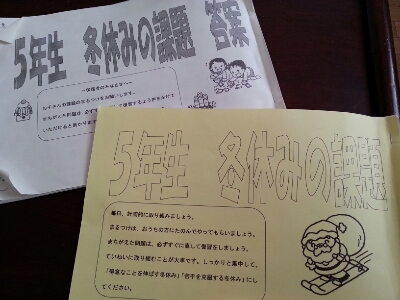 5年生 冬休みの課題 答案
お子さんの課題のまるつけをお願いします。
5年生 冬休みの課題
毎日、計画的に取り組みましょう。
まるつけは、おうちの方にたのんでやってもらいましょう。
まちがえた問題は、必ずすぐに直して復習をしましょう。
ていねいに取り組むことが大事です。しっかりと集中して、
「得意なことを伸ばす冬休み」「苦手を克服する冬休み」にし
てください。